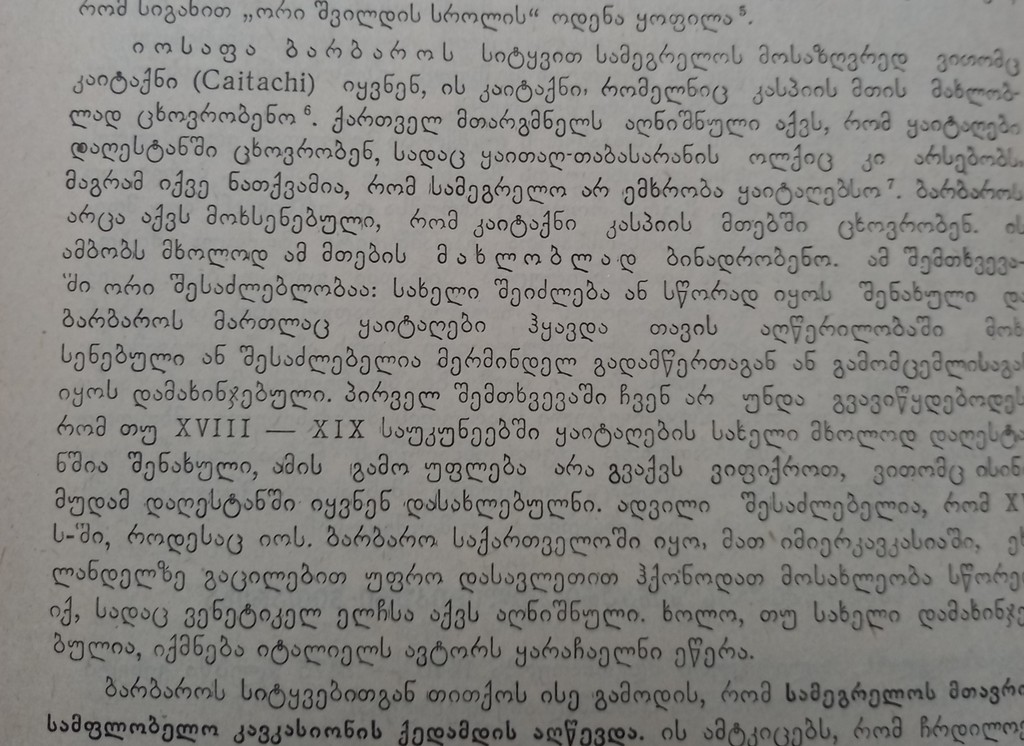 რომ სიგახით „ორი შვილდის სროლის“ ოდენა ყოფილა⁵.
იოსაფა ბარბაროს სიტყვით სამეგრელოს მოსაზღვრედ ვითომც
კაიტაქნი (Caitachi) იყვნენ, ის კაიტაქნი, რომელნიც კასპიის მთის მახლობ-
ლად ცხოვრობენო⁶. ქართველ მთარგმნელს აღნიშნული აქვს, რომ ყაიტაღები
დაღესტანში ცხოვრობენ, სადაც ყაითაღ-თაბასარანის ოლქიც კი არსებობს,
მაგრამ იქვე ნათქვამია, რომ სამეგრელო არ ემხრობა ყაიტაღებსო⁷. ბარბაროს
არცა აქვს მოხსენებული, რომ კაიტაქნი კასპიის მთებში ცხოვრობენ. ის
ამბობს მხოლოდ ამ მთების მახლობლად ბინადრობენო. ამ შემთხვევა-
ში ორი შესაძლებლობაა: სახელი შეიძლება ან სწორად იყოს შენახული და
ბარბაროს მართლაც ყაიტაღები ჰყავდა თავის აღწერილობაში მოხ
სენებული ან შესაძლებელია მერმინდელ გადამწერთაგან ან გამომცემლისაგა
იყოს დამახინჯებული. პირველ შემთხვევაში ჩვენ არ უნდა გვავიწყდებოდეს
რომ თუ XVIII — XIX საუკუნეებში ყაიტაღების სახელი მხოლოდ დაღესტა
ნშია შენახული, ამის გამო უფლება არა გვაქვს ვიფიქროთ, ვითომც ისინ
მუდამ დაღესტანში იყვნენ დასახლებულნი. ადვილი შესაძლებელია, რომ X
ს-ში, როდესაც იოს. ბარბარო საქართველოში იყო, მათ იმიერკავკასიაში, ეხ
ლანდელზე გაცილებით უფრო დასავლეთით ჰქონოდათ მოსახლეობა სწორე
იქ, სადაც ვენეტიკელ ელჩსა აქვს აღნიშნული. ხოლო, თუ სახელი დამახინჯე
ბულია, იქმნება იტალიელს ავტორს ყარაჩაელნი ეწერა.
ბარბაროს სიტყვებითგან თითქოს ისე გამოდის, რომ სამეგრელოს მთავრო
სამფლობელო კავკასიონის ქედამდის აღწევდა. ის ამტკიცებს, რომ ჩრდილოე